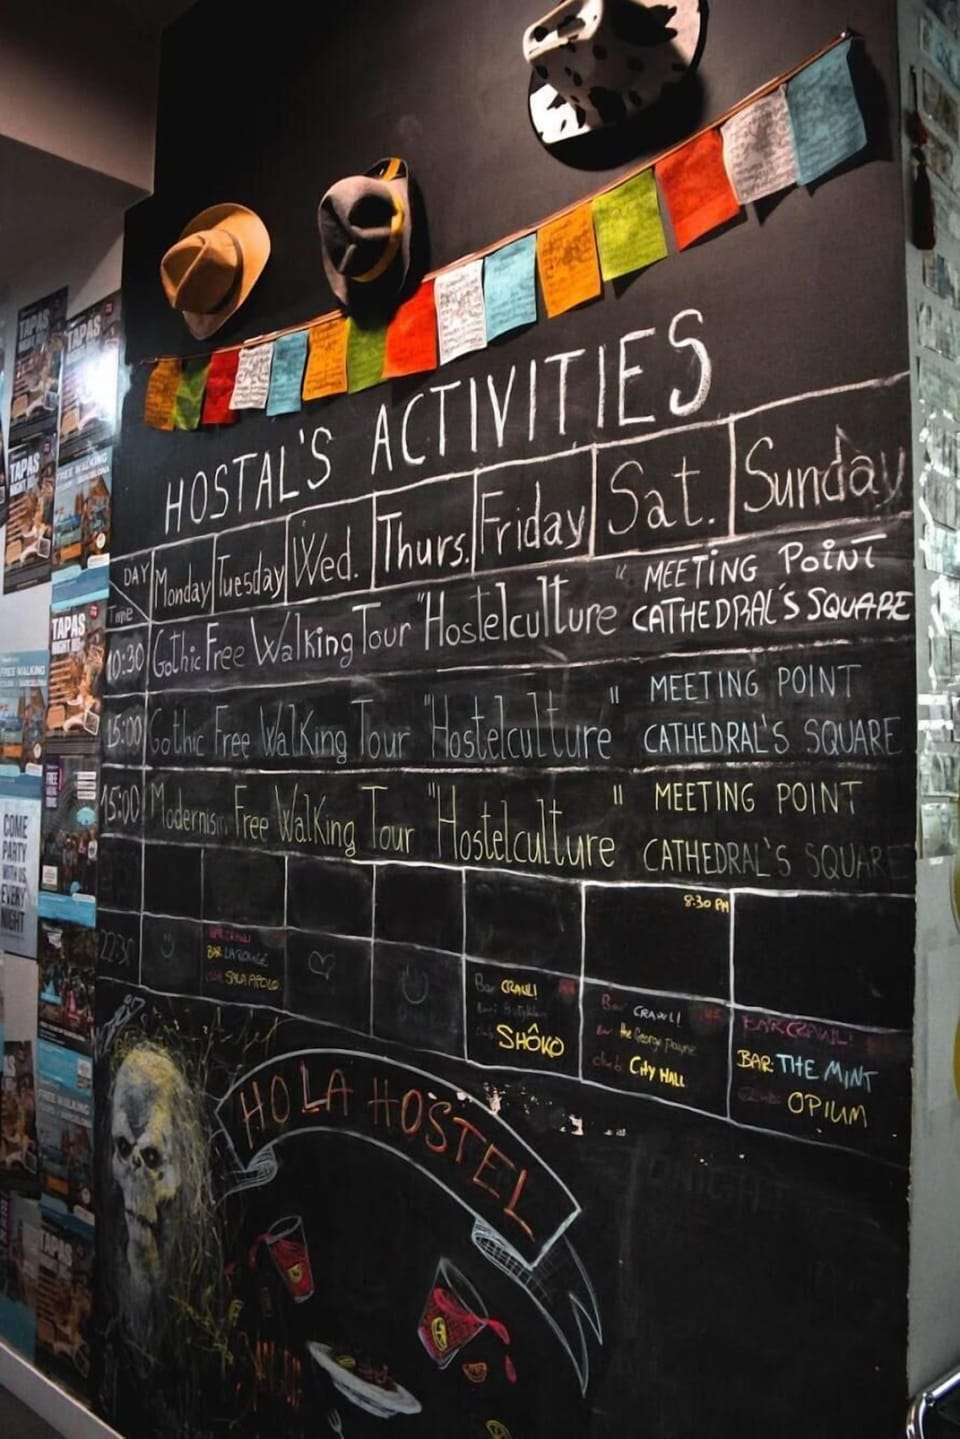 HOSTAL'S ACTIVITIES
DAY Monday Tuesday Wed. Thurs. Friday Sat. Sunday
Time
10:30 Gothic Free Walking Tour "Hostelculture" MEETING POINT
CATHEDRAL'S SQUARE
15:00 Gothic Free Walking Tour "Hostelculture" MEETING POINT
CATHEDRAL'S SQUARE
15:00 Modernism Free Walking Tour "Hostelculture" MEETING POINT
CATHEDRAL'S SQUARE
8:30 PM
22:30
BAR CRAWL!
BAR:
SALA APOLO
Bar CRAWL!
SHÔKO
Bar CRAWL!
Bar: the George Payne
club CITY HALL
BAR CRAWL!
BAR: THE MINT
CLUB: OPIUM
HOLA HOSTEL
TAPAS
TAPAS
TAPAS
FREE WALKING
TAPAS
FREE WALKING
FREE
COME
PARTY
WITH US
EVERY
NIGHT
FREE WALKING
TAPAS